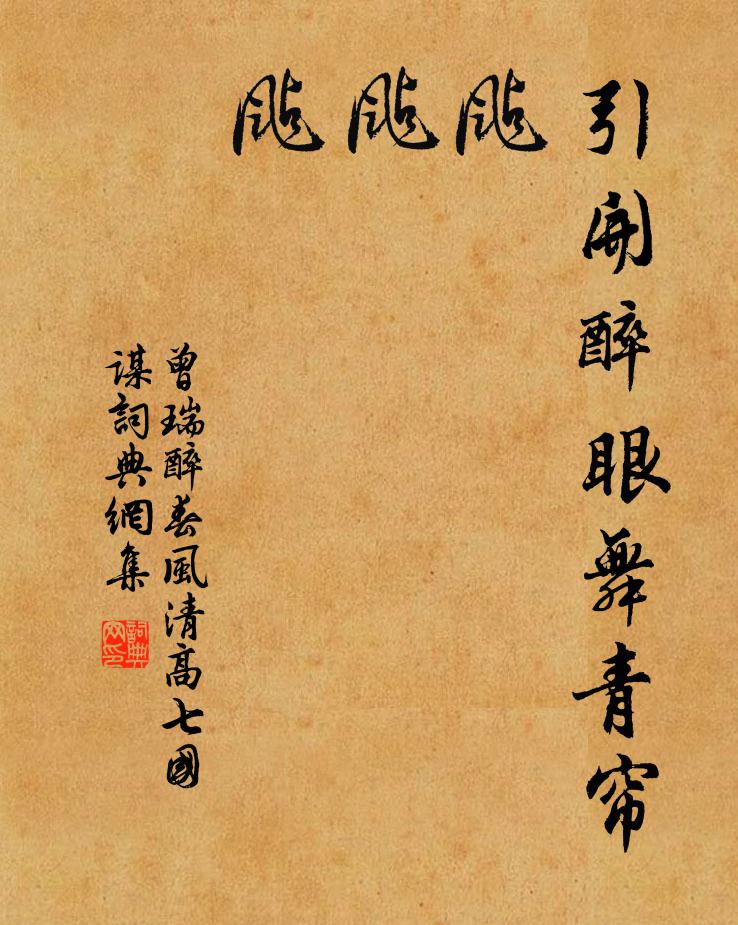 引開醉眼舞青帘
颭
颭
颭
曾瑞醉春風清高七國
謀詞典網集
詞典
网印